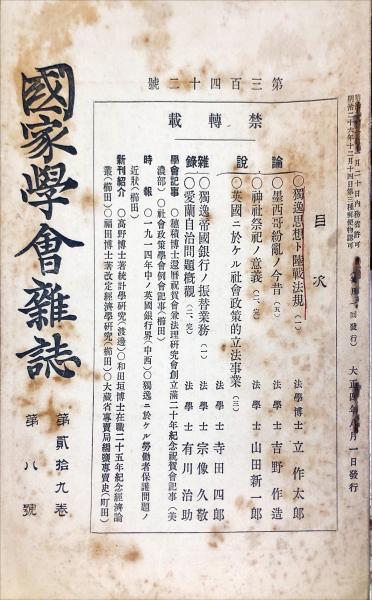 國家學會雜誌
第貳拾九卷
第八號
第三百四十二號
禁轉載
目次
論說
〇獨逸思想ト陸戰法規(一) 法學博士 立作太郎
〇墨西哥紛亂ノ今昔(五) 法學士 吉野作造
〇神社祭祀ノ意義(二、完) 法學士 山田新一郎
〇英國ニ於ケル社會政策的立法事業(三) 法學士 寺田四郎
雜錄
〇獨逸帝國銀行ノ振替業務(一) 法學士 宗像久敬
〇愛蘭自治問題槪觀(二、完) 法學士 有川治助
學會記事 〇穗積博士還曆祝賀會並法理研究會創立滿二十年紀念祝賀會記事(美
濃部)〇社會政策學會例會記事(櫛田)
時報 〇一九一四年中ノ英國銀行界(中西)〇獨逸ニ於ケル勞働者保護問題ノ
近狀(櫛田)
新刊紹介 〇高野博士著統計學硏究(渡邊)〇和田垣博士在職二十五年紀念經濟論
叢(櫛田)〇福田博士著改定經濟學硏究(櫛田)〇大藏省專賣局編鹽專賣史(町田)
月二十日內務省許可
明治二十六年十二月十四日第三種郵便物認可
回發行)
大正四年八月一日發行